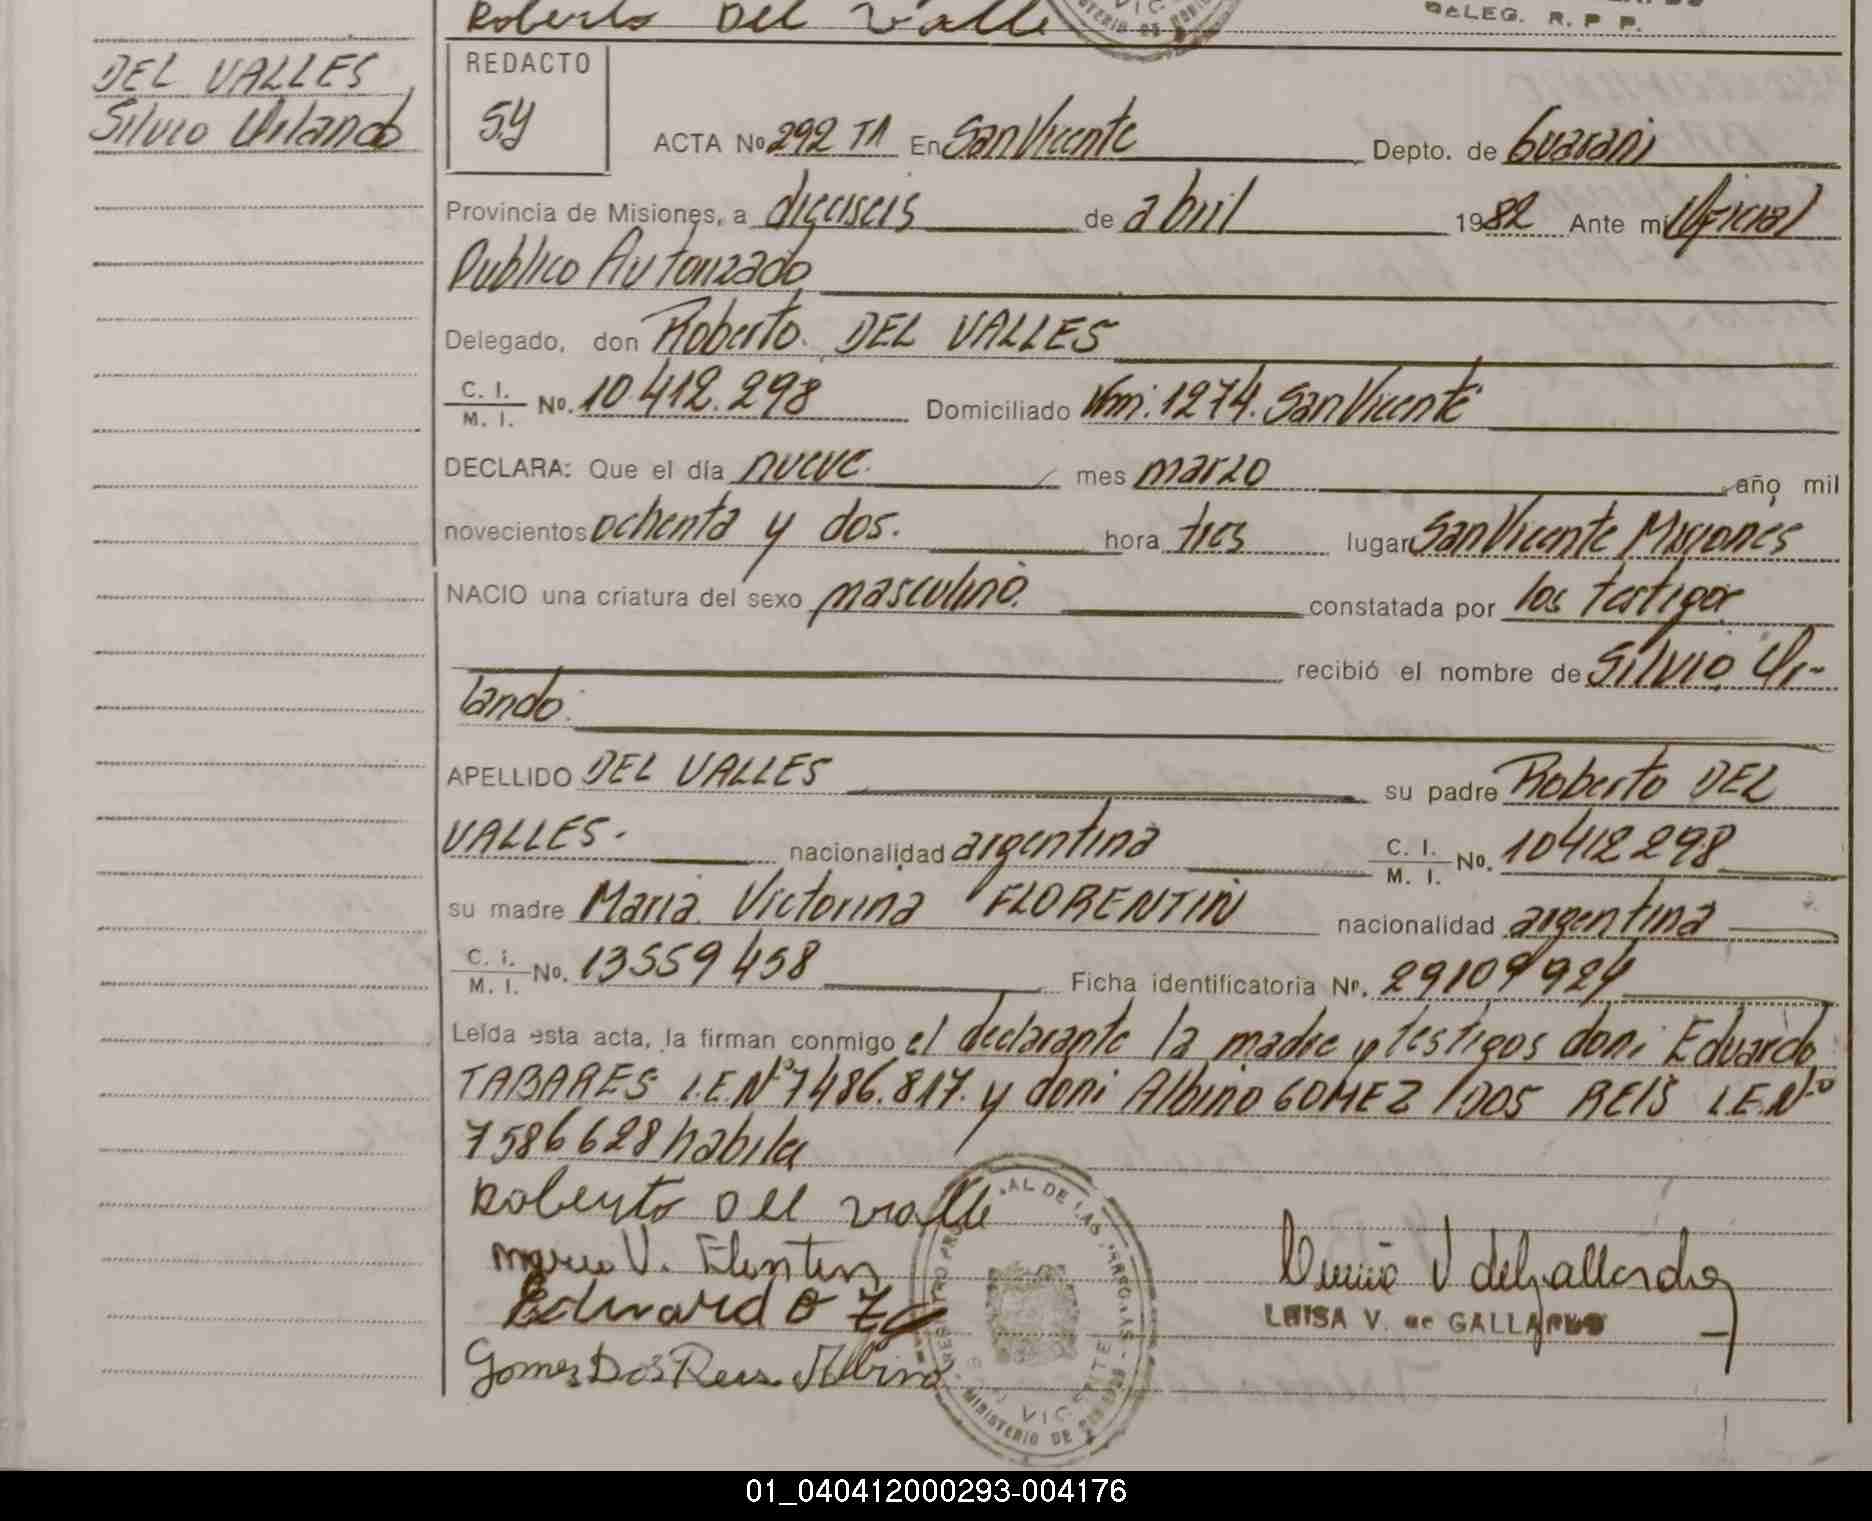 Roberto Del Valle
DALEG. R. P P.
DEL VALLES
Silvio Orlando
REDACTO
ACTA Nº 292 T1 En San Vicente Depto. de Guarani
Provincia de Misiones, a dieciseis de abril 1982 Ante mi Oficial
Publico Autorizado
Delegado, don Roberto DEL VALLES
C. I. / M. I. Nº. 10.412.298 Domiciliado Km. 1274. San Vicente
DECLARA: Que el día nueve. mes marzo año mil
novecientos ochenta y dos. hora tres lugar San Vicente Misiones
NACIO una criatura del sexo masculino. constatada por los testigos
recibió el nombre de Silvio Or-
lando.
APELLIDO DEL VALLES su padre Roberto DEL
VALLES. nacionalidad argentina C. I. / M. I. No. 10412298
su madre Maria Victorina FLORENTIN nacionalidad argentina
C. i. / M. I. No. 13559458 Ficha identificatoria Nº. 29109924
Leída esta acta, la firman conmigo el declarante la madre y testigos don: Eduardo
TABARES L.E.Nº 7486.817. y don: Albino GOMEZ DOS REIS L.E.Nº
7586628 habiles
Roberto Del Valle
Maria V. Florentin
Eduardo
LUISA V. de GALLARDO
Gomes Dos Reis Albino
REGISTRO PROVINCIAL DE LAS PERSONAS
VICENTE
MINISTERIO DE GOBIERNO
01_040412000293-004176